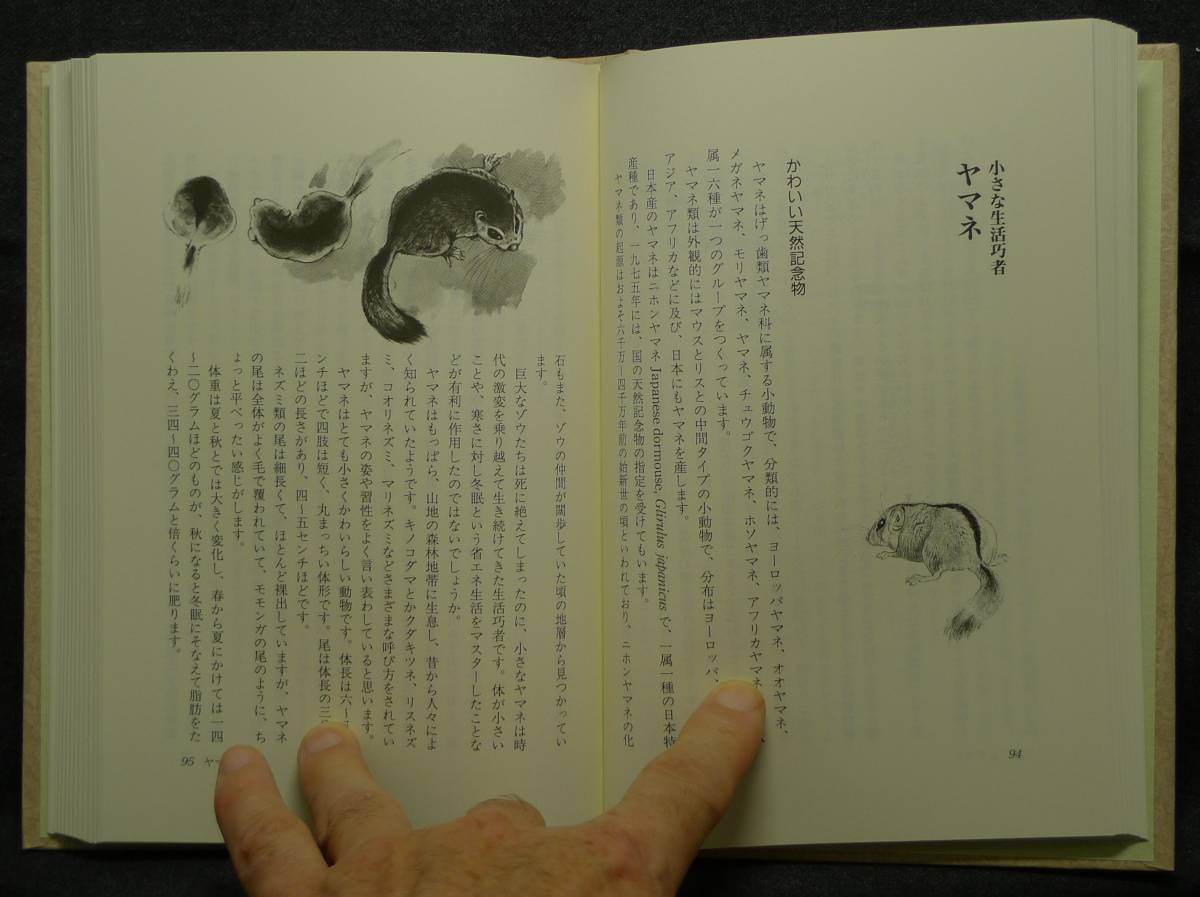 小さな生活巧者
ヤマネ
かわいい天然記念物
ヤマネはげっ歯類ヤマネ科に属する小動物で、分類的には、ヨーロッパヤマネ、オオヤマネ、
メガネヤマネ、モリヤマネ、ヤマネ、チュウゴクヤマネ、ホソヤマネ、アフリカヤマネ
属一六種が一つのグループをつくっています。
ヤマネ類は外観的にはマウスとリスとの中間タイプの小動物で、分布はヨーロッパ、
アジア、アフリカなどに及び、日本にもヤマネを産します。
日本産のヤマネはニホンヤマネ Japanese dormouse, Glirulus japanicus で、一属一種の日本特
産種であり、一九七五年には、国の天然記念物の指定を受けてもいます。
ヤマネ類の起源はおよそ六千万〜四千万年前の始新世の頃といわれており、ニホンヤマネの化
94
石もまた、ゾウの仲間が闊歩していた頃の地層から見つかってい
ます。
巨大なゾウたちは死に絶えてしまったのに、小さなヤマネは時
代の激変を乗り越えて生き続けてきた生活巧者です。体が小さい
ことや、寒さに対し冬眠という省エネ生活をマスターしたことな
どが有利に作用したのではないでしょうか。
ヤマネはもっぱら、山地の森林地帯に生息し、昔から人々によ
く知られていたようです。キノコダマとかクダキツネ、リスネズ
ミ、コオリネズミ、マリネズミなどさまざまな呼び方をされてい
ますが、ヤマネの姿や習性をよく言い表わしていると思います。
ヤマネはとても小さくかわいらしい動物です。体長は六〜
ンチほどで四肢は短く、丸まっちい体形です。尾は体長の三
二ほどの長さがあり、四〜五センチほどです。
ネズミ類の尾は細長くて、ほとんど裸出していますが、ヤマネ
の尾は全体がよく毛で覆われていて、モモンガの尾のように、ち
ょっと平べったい感じがします。
体重は夏と秋とでは大きく変化し、春から夏にかけては一四
〜二〇グラムほどのものが、秋になると冬眠にそなえて脂肪をた
くわえ、三四〜四〇グラムと倍くらいに肥ります。
95 ヤ